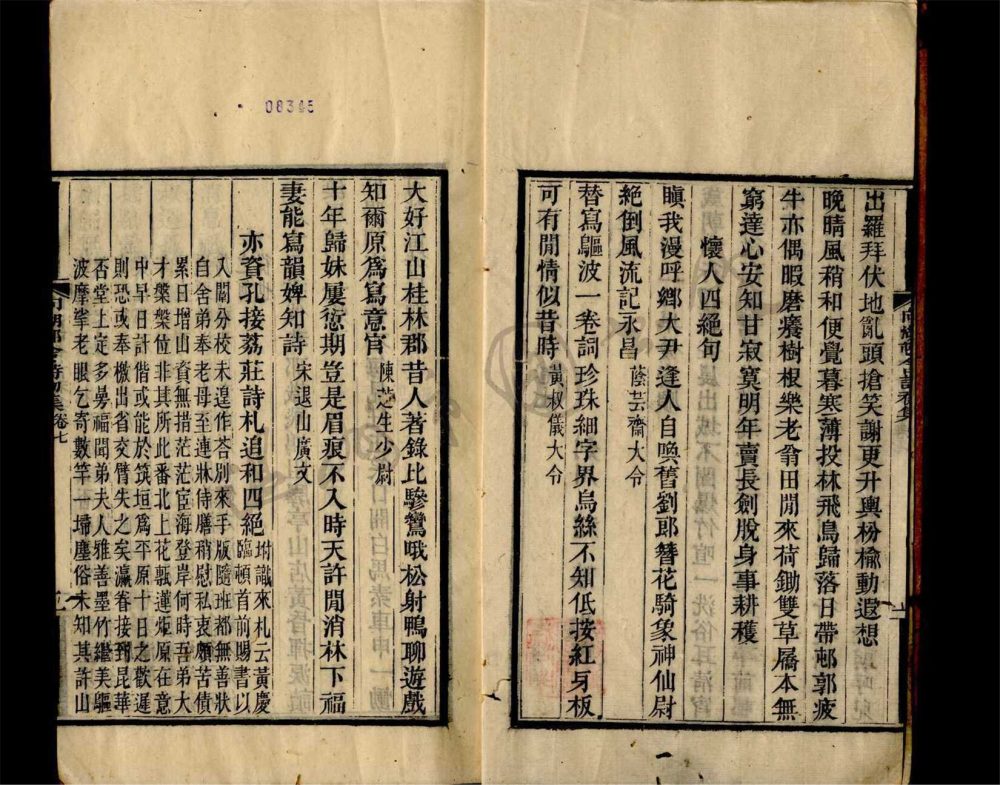 出羅拜伏地亂頭搶笑謝更升輿枌榆動遐想
晚晴風稍和便覺暮寒薄投林飛鳥歸落日帶邨郭疲
牛亦偶暇磨癢樹根樂老翁田閒來荷鋤雙草屩本無
窮達心安知甘寂寞明年賣長劍脫身事耕穫
懷人四絕句
瞋我漫呼鄉大尹逢人自喚舊劉郎簪花騎象神仙尉
絕倒風流記永昌 蔭芸齋大令
替寫鷗波一卷詞珍珠細字界烏絲不知低按紅牙板
可有閒情似昔時 黃叔儀大令
08345
大好江山桂林郡昔人著錄比驂鸞哦松射鴨聊遊戲
知爾原爲寫意官 陳芝生少尉
十年歸妹屢愆期豈是眉痕不入時天許閒消林下福
妻能寫韻婢知詩 宋退山廣文
亦資孔接荔莊詩札追和四絕 坿識來札云黃慶
臨頓首前賜書以
入闈分校未遑作荅別來手版隨班都無善狀
自舍弟奉老母至連牀侍膳稍慰私衷願苦債
累日增山資無措茫茫宦海登岸何時吾弟大
才槃槃位非其所此番北上花驄蓮炬原在意
中早日計偕或能於筑垣爲平原十日之歡遲
則恐或奉檄出省交臂失之矣瀛眷接到昆華
否堂上定多曼福聞弟夫人雅善墨竹繼美鷗
波摩挲老眼乞寄數竿一埽塵俗未知其許山
卷七